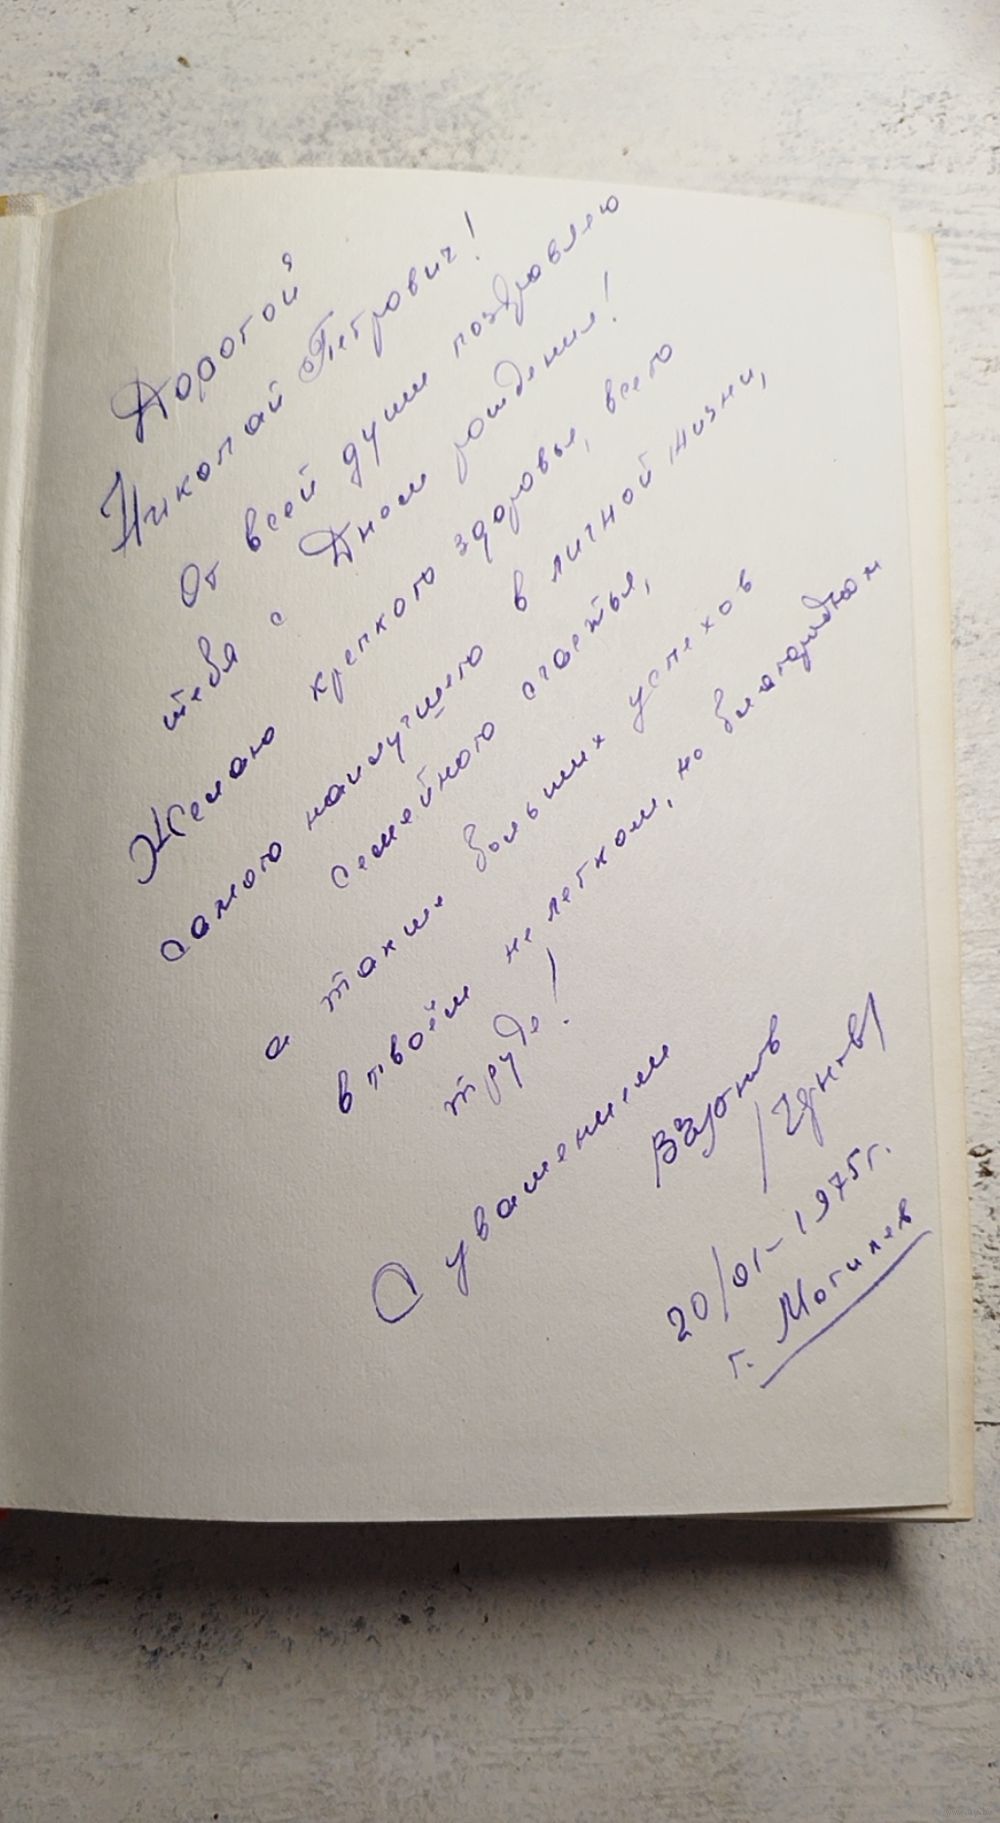 Дорогой
Николай Петрович!
От всей души поздравляю
тебя с Днем рождения!
Желаю крепкого здоровья, всего
самого наилучшего в личной жизни,
семейного счастья,
а также больших успехов
в твоём не легком, но благородном
труде!
С уважением
20/01-1975г.
г. Могилев